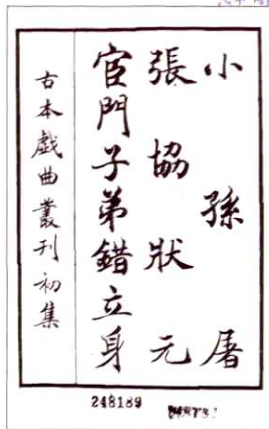 小孫屠
張協狀元
宦門子弟錯立身
古本戲曲叢刊初集
248189